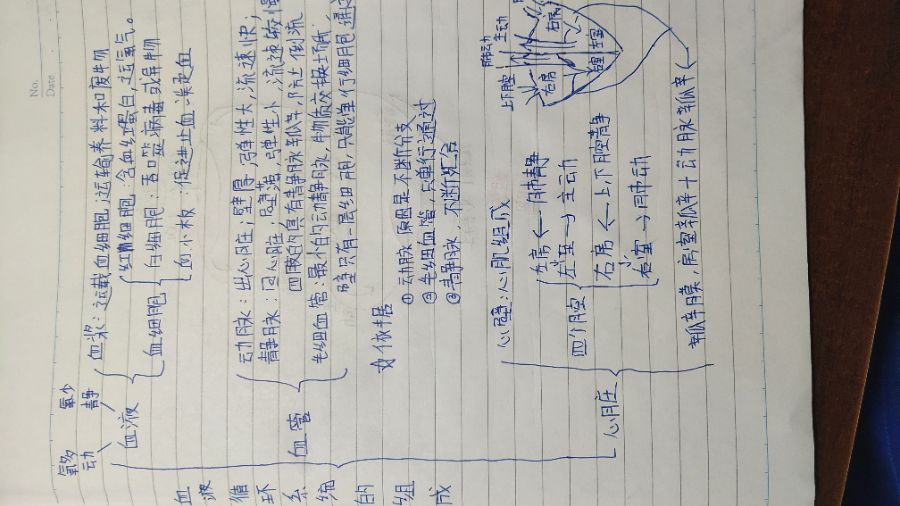 No.
Date
氧多 氧少
动 静
血液循环系统的组成
血液
血浆：运载血细胞，运输养料和废物
血细胞
红细胞：含血红蛋白，运氧气。
白细胞：吞噬病毒或异物
血小板：促进止血
血管
动脉：出心脏；壁厚，弹性大，流速快；
静脉：回心脏；壁薄，弹性小，流速较慢
四肢的具有静脉瓣，防止倒流
毛细血管：最小的动静脉，物质交换场所，
壁只有一层细胞，只能单行细胞通过
☆依据
①动脉 原因是不断分支
②毛细血管，只单行通过
③静脉，不断汇合
心脏
心壁：心肌组成
四个腔
左房←肺静
左室→主动
右房←上下腔静
右室→肺动
瓣膜，房室瓣+动脉瓣
肺动 主动
上下腔
右房
左房
右室
左室